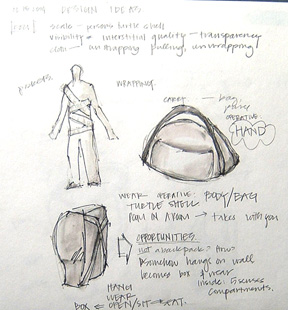 DESIGN IDEAS
scale - persons turtle shell
visibility - interstitial quality - transparency
unwrapping pulling, unwrapping
WRAPPING
CARRY — bag,
OPERATIVE:
HAND
WEAR OPERATIVE: BODY/BAG
TURTLE SHELL
ROOM IN A ROOM → takes with you
OPPORTUNITIES
not a backpack?
somehow hangs on wall
becomes box & wear
inside:
compartments.
HANG
WEAR
BOX ← OPEN/SIT - SEAT.